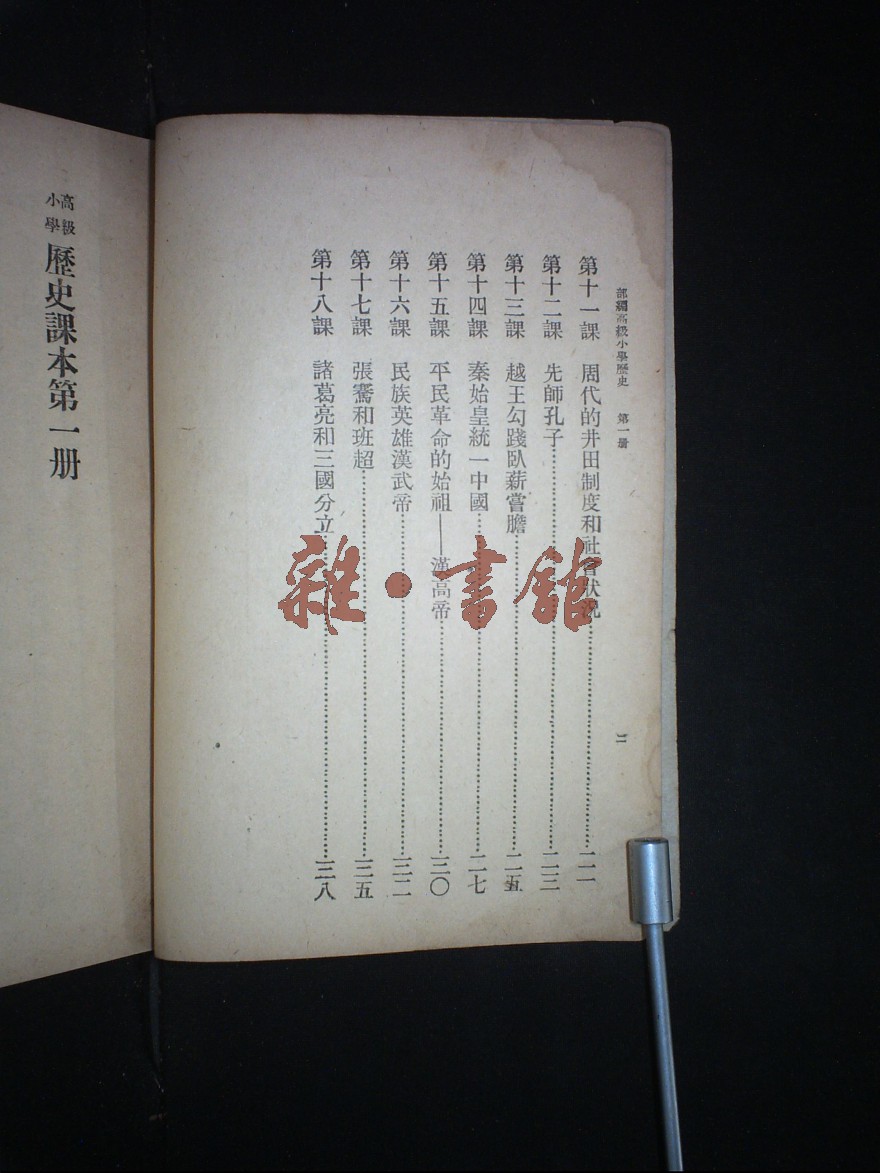 部編高級小學歷史　第一册
二
第十一課　周代的井田制度和社會狀況……二一
第十二課　先師孔子……二三
第十三課　越王勾踐臥薪嘗膽……二五
第十四課　秦始皇統一中國……二七
第十五課　平民革命的始祖——漢高帝……三〇
第十六課　民族英雄漢武帝……三二
第十七課　張騫和班超……三五
第十八課　諸葛亮和三國分立……三八
高級小學　歷史課本第一册
雜·書館